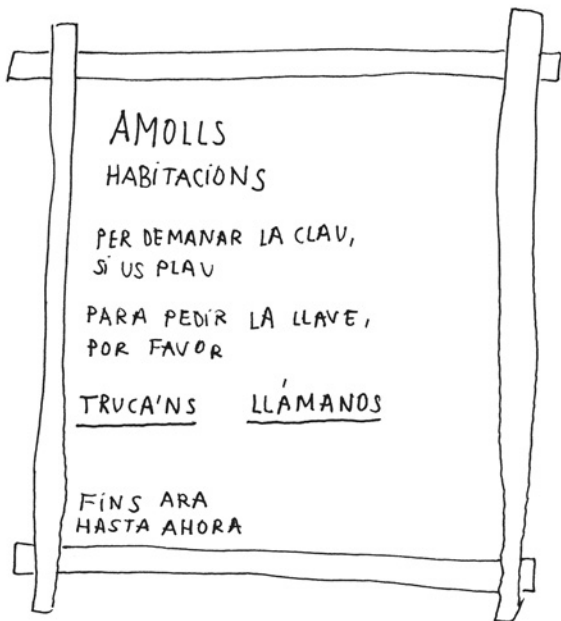 AMOLLS
HABITACIONS
PER DEMANAR LA CLAU,
SI US PLAU
PARA PEDIR LA LLAVE,
POR FAVOR
TRUCA'NS LLÁMANOS
FINS ARA
HASTA AHORA